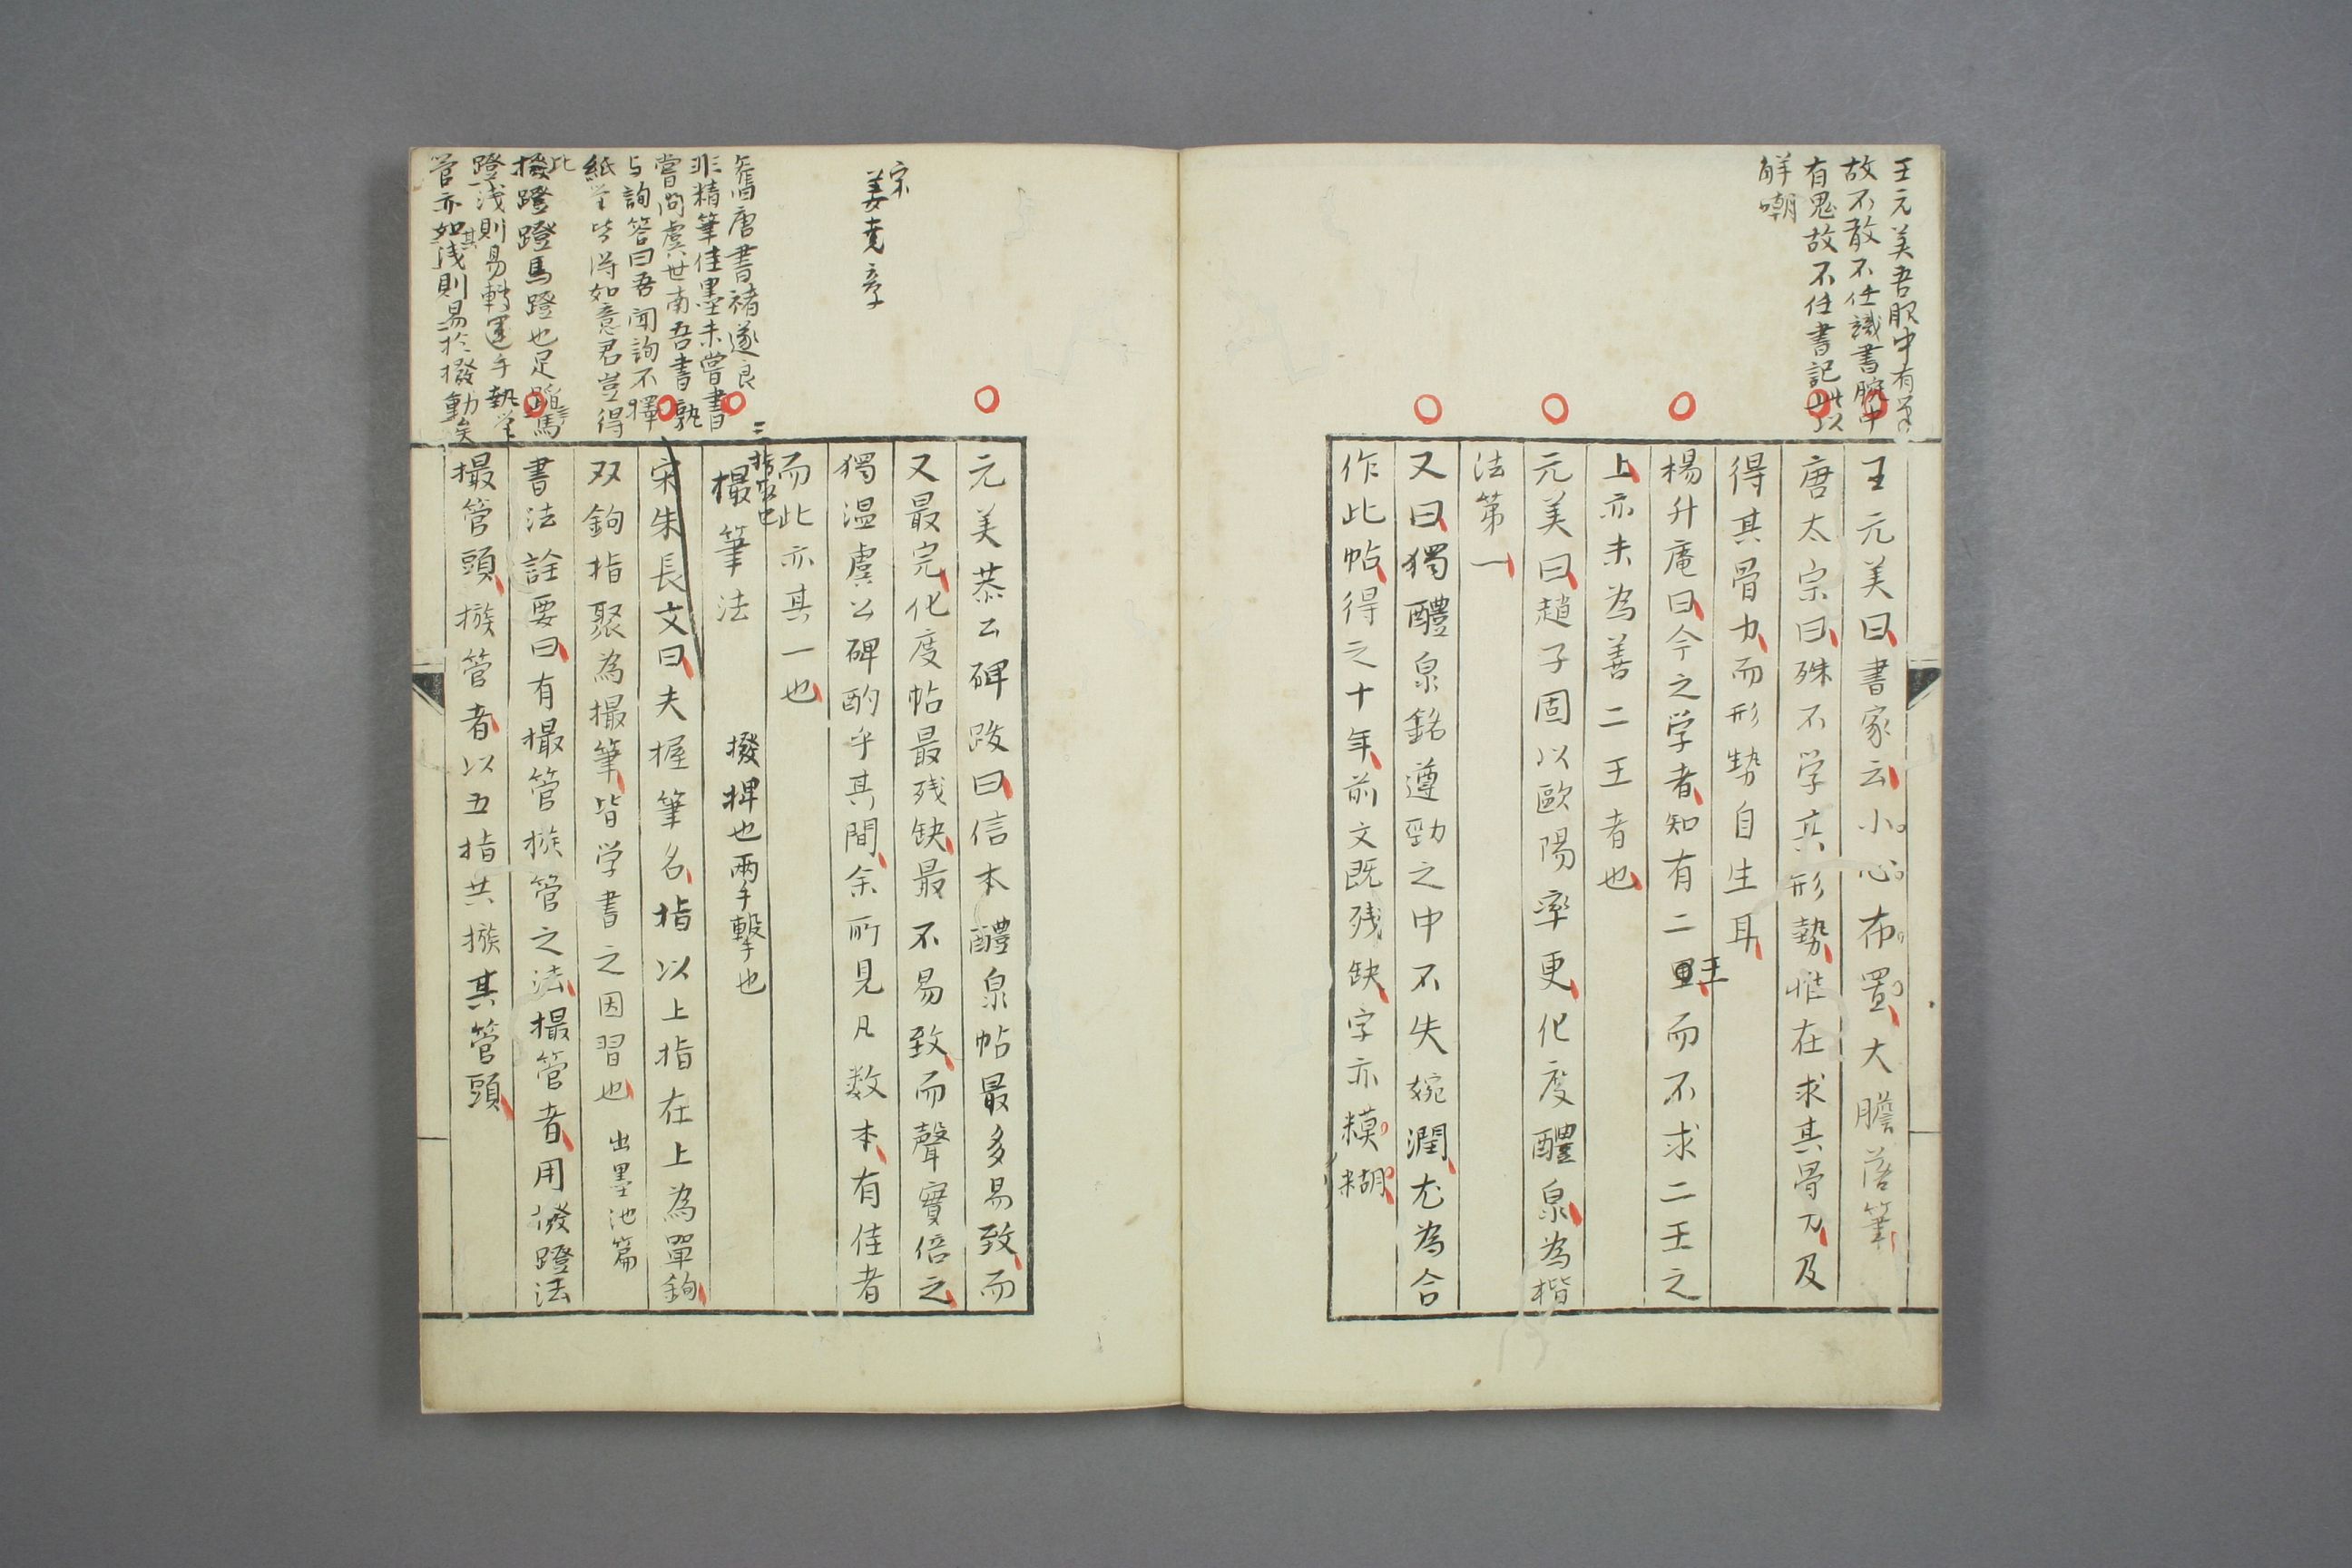 王元美吾眼中有筆
故不敢不任識書腕中
有鬼故不任書記此以
解嘲
王元美曰書家云小心布置大膽落筆
唐太宗曰殊不学其形勢惟在求其骨力及
得其骨力而形勢自生耳
楊升庵曰今之学者知有二王而不求二王之
上亦未為善二王者也
元美曰趙子固以歐陽率更化度醴泉為楷
法第一
又曰獨醴泉銘遵勁之中不失婉潤尤為合
作此帖得之十年前文既残缺字亦糢糊
宋
姜堯章
舊唐書褚遂良
非精筆佳墨未嘗書
嘗問虞世南吾書孰
与詢答曰吾聞詢不擇
紙筆皆得如意君豈得
此
撥蹬蹬馬蹬也足踏馬
蹬浅則易轉運手執筆
管亦如其浅則易於撥動矣
元美恭公碑跋曰信本醴泉帖最多易致而
又最完化度帖最残缺最不易致而聲實倍之
獨温虞公碑酌乎其間余所見凡数本有佳者
而此亦其一也
三指取也
撮筆法 撥捍也兩手擊也
宋朱長文曰夫握筆名指以上指在上為單鉤
双鉤指聚為撮筆皆学書之因習也 出墨池篇
書法詮要曰有撮管撥管之法撮管者用撥蹬法
撮管頭撥管者以五指共撥其管頭